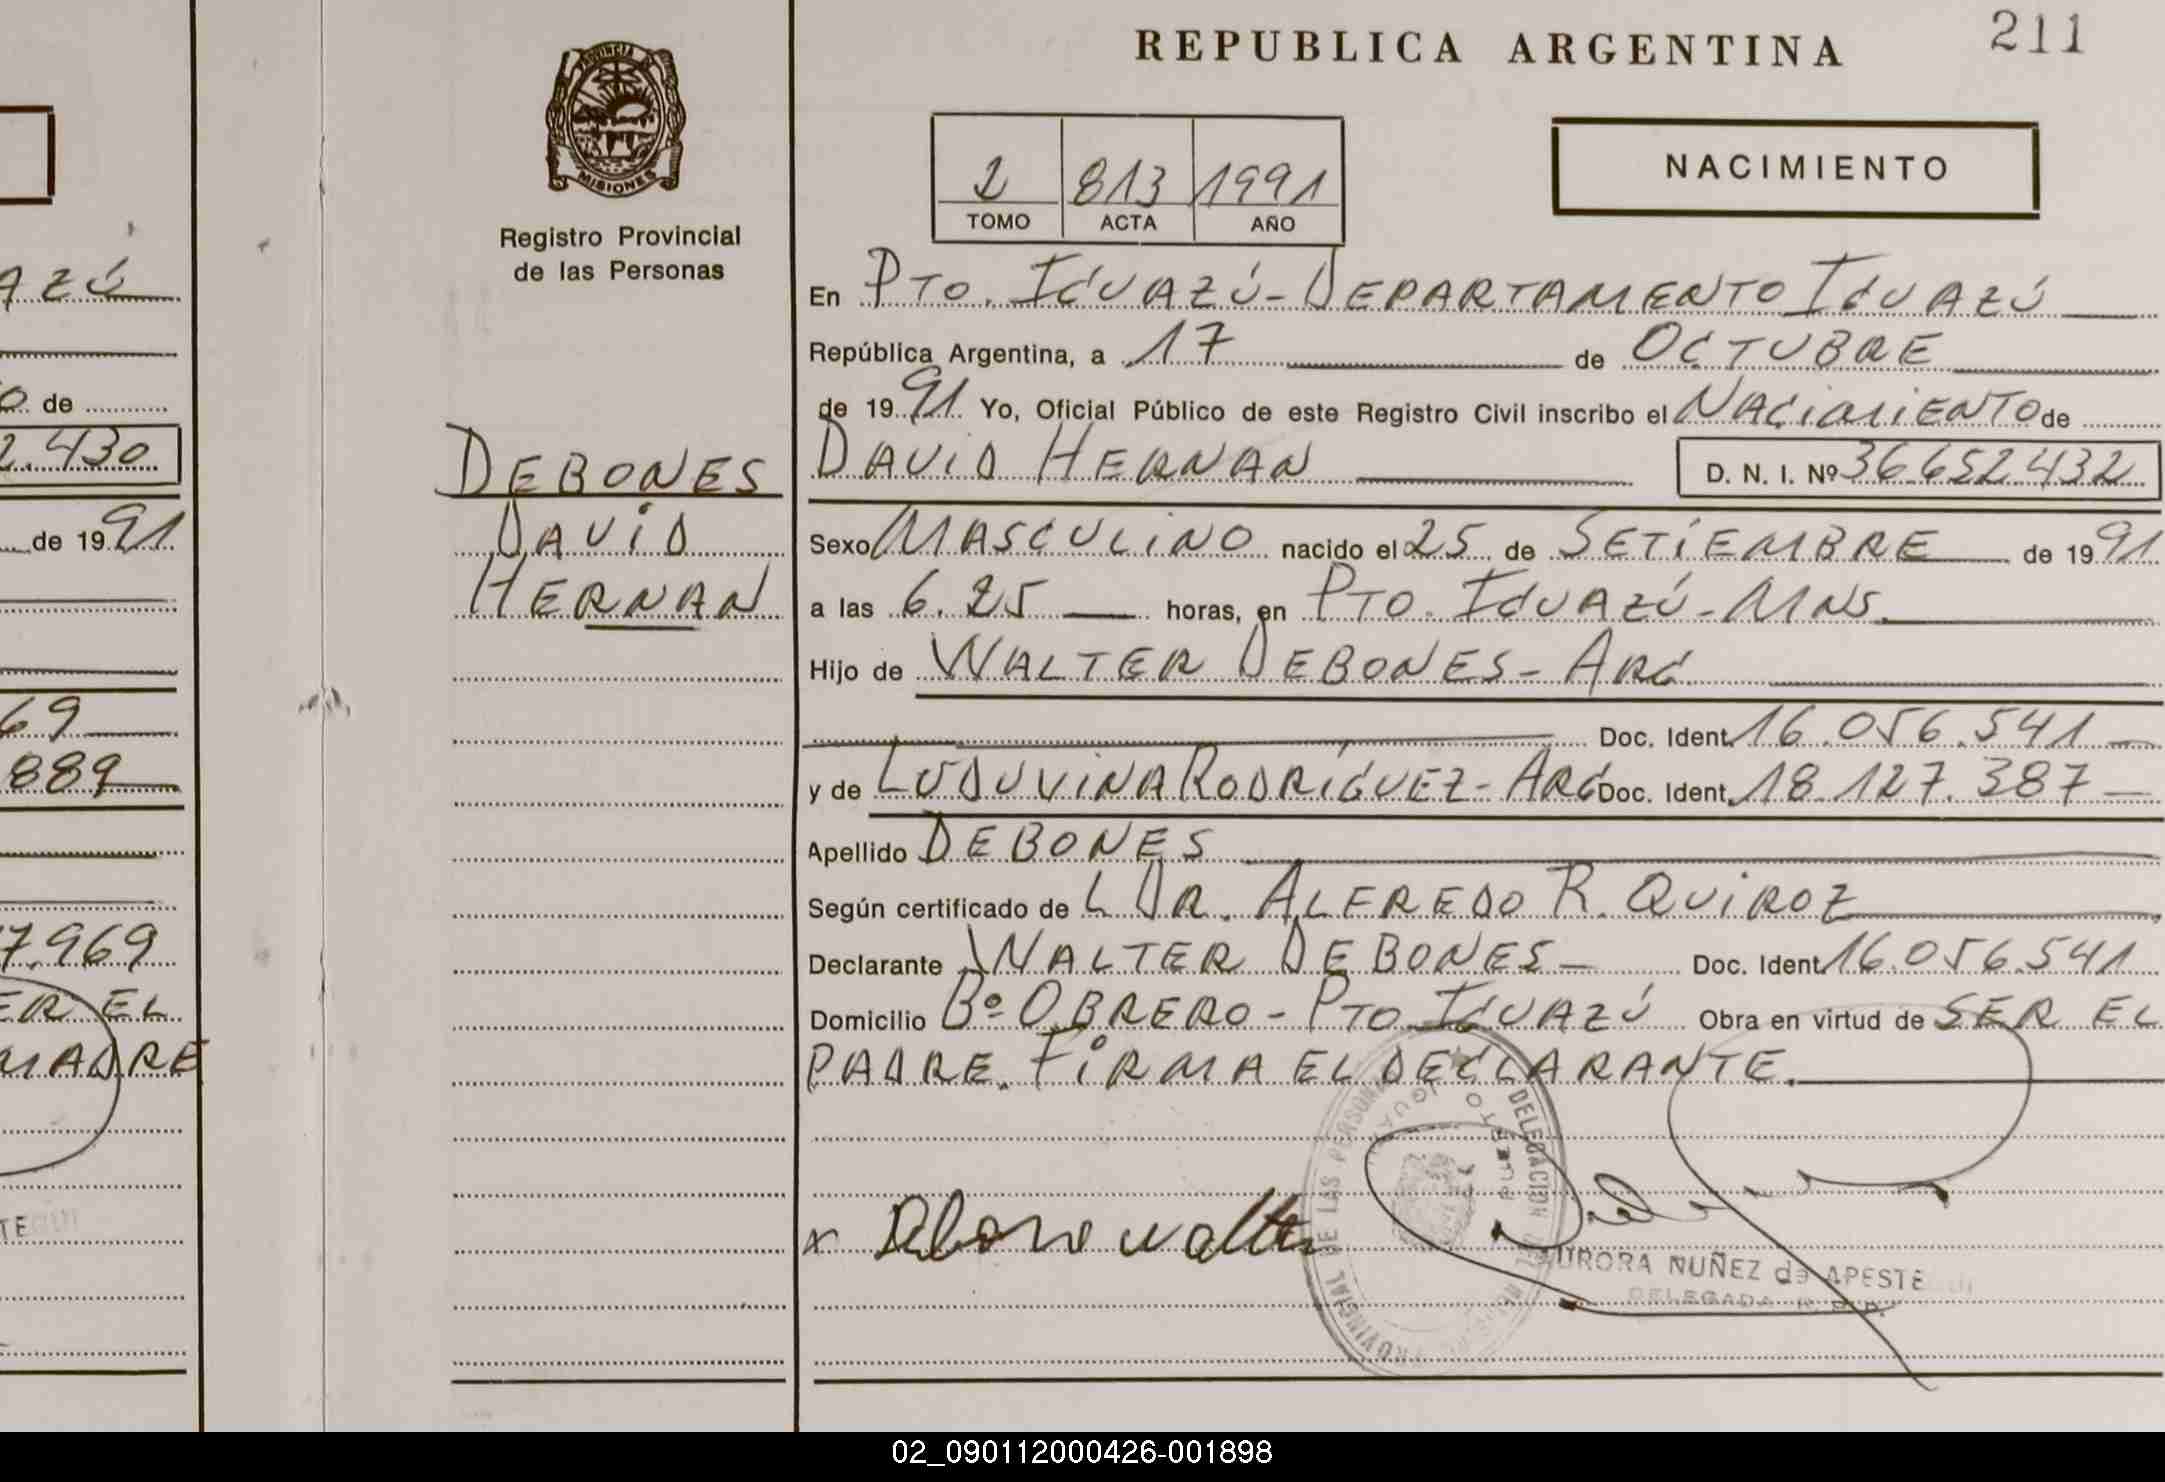 AZÚ
O de
2.430
de 1991
69
889
7.969
ER EL
MADRE
TE
PROVINCIA DE
MISIONES
Registro Provincial
de las Personas
DEBONES
DAVID
HERNAN
REPUBLICA ARGENTINA
211
2 813 1991
TOMO ACTA AÑO
NACIMIENTO
En PTO. IGUAZÚ - DEPARTAMENTO IGUAZÚ
República Argentina, a 17 de OCTUBRE
de 1991 Yo, Oficial Público de este Registro Civil inscribo el NACIMIENTO de
DAVID HERNAN D. N. I. Nº 36.652.432
Sexo MASCULINO nacido el 25 de SETIEMBRE de 1991
a las 6.25 horas, en PTO. IGUAZÚ - MNS.
Hijo de WALTER DEBONES - ARG
Doc. Ident. 16.056.541
y de LUDUVINA RODRÍGUEZ - ARG Doc. Ident. 18.127.387
Apellido DEBONES
Según certificado de L DR. ALFREDO R. QUIROZ
Declarante WALTER DEBONES - Doc. Ident. 16.056.541
Domicilio Bº OBRERO - PTO IGUAZÚ Obra en virtud de SER EL
PADRE. FIRMA EL DECLARANTE.
x Debone walter
PROVINCIAL DE LAS PERSONAS
DELEGACION
PUERTO IGUAZU
AURORA NUÑEZ de APESTEGUI
DELEGADA R. P. P.
02_090112000426-001898